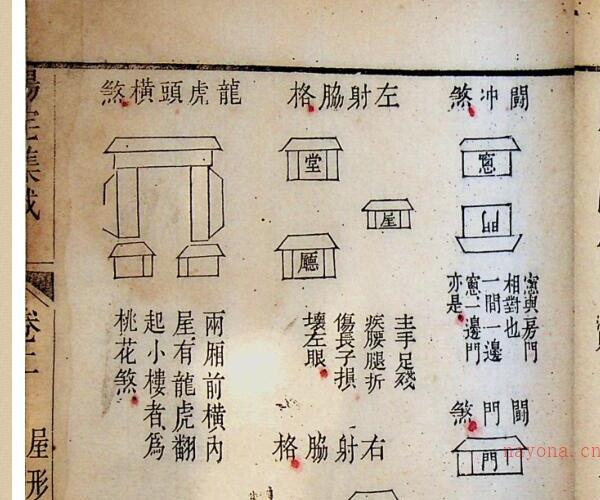 闘冲煞
窻
門
窻與房門
相對也
一間一邊
窻二邊門
亦是
闘門煞
門
左射脇格
堂
屋
廳
主手足殘
疾腰腿折
傷長子損
壞左眼
右射脇格
龍虎頭橫煞
兩廂前橫內
屋有龍虎翻
起小樓者為
桃花煞
陽宅集成
卷二
屋形
nayona.cn